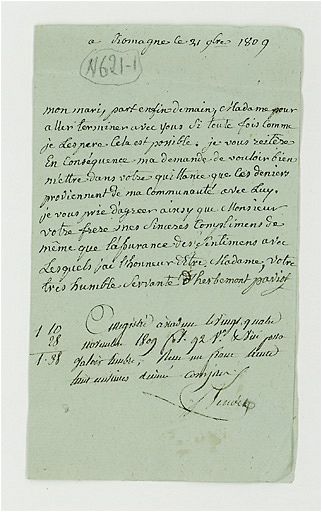 a Romagne le 21 9bre 1809
N621-1
mon mary part enfin demain, Madame pour
aller terminer avec vous Si toute fois comme
je Lespere Cela est posible, je vous reitere
En Consequence ma demande de vouloir bien
mettre dans votre quittance que Les deniers
proviennent de ma Communauté avec Luy.
je vous prie d'agreer ainsy que Monsieur
votre frere mes Sinceres Complimens de
même que Lasurance des Sentimens avec
Lesquels jai L'honneur d'Etre, Madame, votre
très humble Servante d'herbemont
1 10
28
1.38
Enregistré a le vingt quatre
novembre 1809 fol. 92
valoir timbre, Reçu un franc trente
huit centimes decime compris